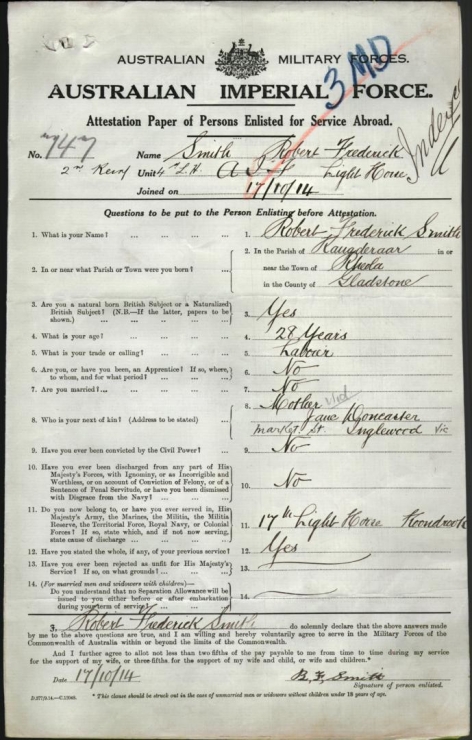 AUSTRALIAN MILITARY FORCES.
3 MD
AUSTRALIAN IMPERIAL FORCE.
Attestation Paper of Persons Enlisted for Service Abroad.
No. 747 Name Smith Robert Frederick
Unit 4th L.H. A.I.F. Light Horse
Joined on 17/10/14
Questions to be put to the Person Enlisting before Attestation.
1. What is your Name? ... ... ... ... 1. Robert Frederick Smith
2. In or near what Parish or Town were you born? ... 2. In the Parish of in or
near the Town of Rheola
in the County of Gladstone
3. Are you a natural born British Subject or a Naturalized
British Subject? (N.B.—If the latter, papers to be
shown.) ... ... ... ... 3. Yes
4. What is your age? ... ... ... ... 4. 28 Years
5. What is your trade or calling? ... ... ... 5. Labour
6. Are you, or have you been, an Apprentice? If so, where,
to whom, and for what period? ... ... 6. No
7. Are you married? ... ... ... ... 7. No
8. Who is your next of kin? (Address to be stated) ... 8. Mother
Jane Doncaster
Market St. Inglewood Vic
9. Have you ever been convicted by the Civil Power? ... 9. No
10. Have you ever been discharged from any part of His
Majesty's Forces, with Ignominy, or as Incorrigible and
Worthless, or on account of Conviction of Felony, or of a
Sentence of Penal Servitude, or have you been dismissed
with Disgrace from the Navy? ... ... 10. No
11. Do you now belong to, or have you ever served in, His
Majesty's Army, the Marines, the Militia, the Militia
Reserve, the Territorial Force, Royal Navy, or Colonial
Forces? If so, state which, and if not now serving,
state cause of discharge ... ... ... 11. 17th Light Horse Koondrook
12. Have you stated the whole, if any, of your previous service? 12. Yes
13. Have you ever been rejected as unfit for His Majesty's
Service? If so, on what grounds? ... ... 13.
14. (For married men and widowers with children)—
Do you understand that no Separation Allowance will be
issued to you either before or after embarkation
during your term of service? 14.
Robert Frederick Smith do solemnly declare that the above answers made
by me to the above questions are true, and I am willing and hereby voluntarily agree to serve in the Military Forces of the
Commonwealth of Australia within or beyond the limits of the Commonwealth.
And I further agree to allot not less than two-fifths of the pay payable to me from time to time during my service
for the support of my wife, or three-fifths for the support of my wife and child, or wife and children.*
Date 17/10/14 R F Smith
Signature of person enlisted.
* This clause should be struck out in the case of unmarried men or widowers without children under 18 years of age.